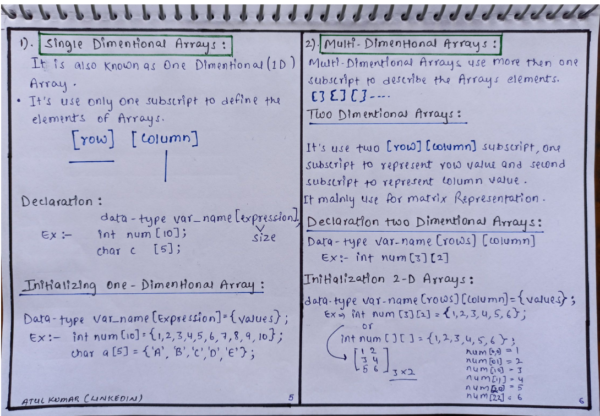 1). Single Dimentional Arrays :
It is also known as One Dimentional (1D)
Array.
• It's use only one subscript to define the
elements of Arrays.
[row] [column]
Declaration :
data-type var_name[expression],
size
Ex:- int num [10];
char c [5];
Initializing one-Dimentional Array :
Data-type var_name[Expression]={values};
Ex:- int num[10]={1,2,3,4,5,6,7,8,9,10};
char a[5] = {'A', 'B', 'C', 'D', 'E'};
ATUL KUMAR (LINKEDIN)
5
2). Multi-Dimentional Arrays :
Multi-Dimentional Arrays use more then one
subscript to describe the Arrays elements.
[] [] []----
Two Dimentional Arrays :
It's use two [row] [column] subscript, one
subscript to represent row value and second
subscript to represent column value.
It mainly use for matrix Representation.
Declaration two Dimentional Arrays :
Data-type var-name [rows] [column]
Ex:- int num [3] [2]
Initialization 2-D Arrays :
data-type var-name[rows][column]={values};
Ex→ int num[3][2] = {1,2,3,4,5,6};
or
int num [ ] [ ] = {1,2,3,4,5,6};
1 2
3 4
5 6
3×2
= 1
= 2
= 3
= 4
= 5
num[22] = 6
6